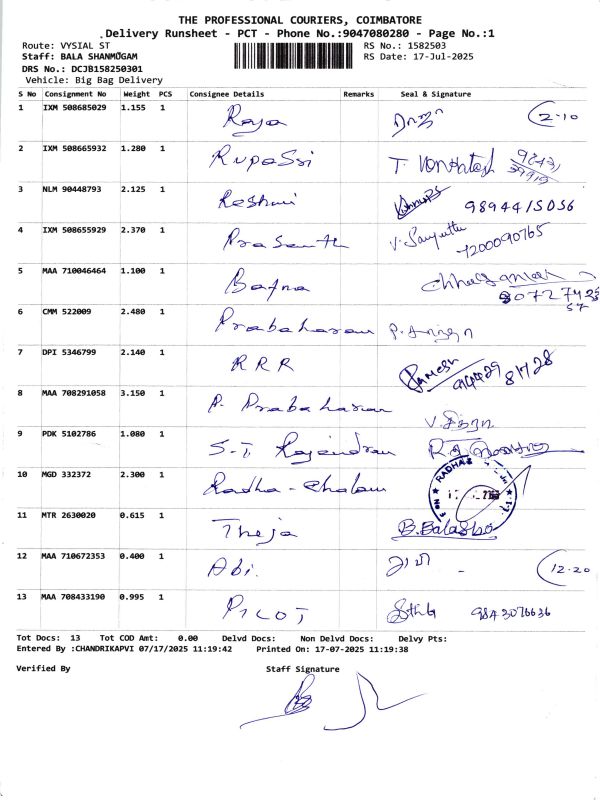 THE PROFESSIONAL COURIERS, COIMBATORE
Delivery Runsheet - PCT - Phone No.:9047080280 - Page No.:1
Route: VYSIAL ST
RS No.: 1582503
Staff: BALA SHANMUGAM
RS Date: 17-Jul-2025
DRS No.: DCJB158250301
Vehicle: Big Bag Delivery
S No Consignment No Weight PCS Consignee Details Remarks Seal & Signature
1 IXM 508685029 1.155 1 Raja 2-10
2 IXM 508665932 1.280 1 Rupassi T. Venkatesh
3 NLM 90448793 2.125 1 Reshmi 9894415056
4 IXM 508655929 2.370 1 Prasanth 7200090765
5 MAA 710046464 1.100 1 Bafna
6 CMM 522009 2.480 1 Prabaharan
7 DPI 5346799 2.140 1 RRR Ramesh
8 MAA 708291058 3.150 1 P. Prabaharan
9 PDK 5102786 1.080 1 S.T. Rajendran
10 MGD 332372 2.300 1 Radha-Chalam RADHA
11 MTR 2630020 0.615 1 Theja
12 MAA 710672353 0.400 1 Abi. அபி - 12-20
13 MAA 708433190 0.995 1 PILOT 9843076636
Tot Docs: 13 Tot COD Amt: 0.00 Delvd Docs: Non Delvd Docs: Delvy Pts:
Entered By :CHANDRIKAPVI 07/17/2025 11:19:42 Printed On: 17-07-2025 11:19:38
Verified By Staff Signature